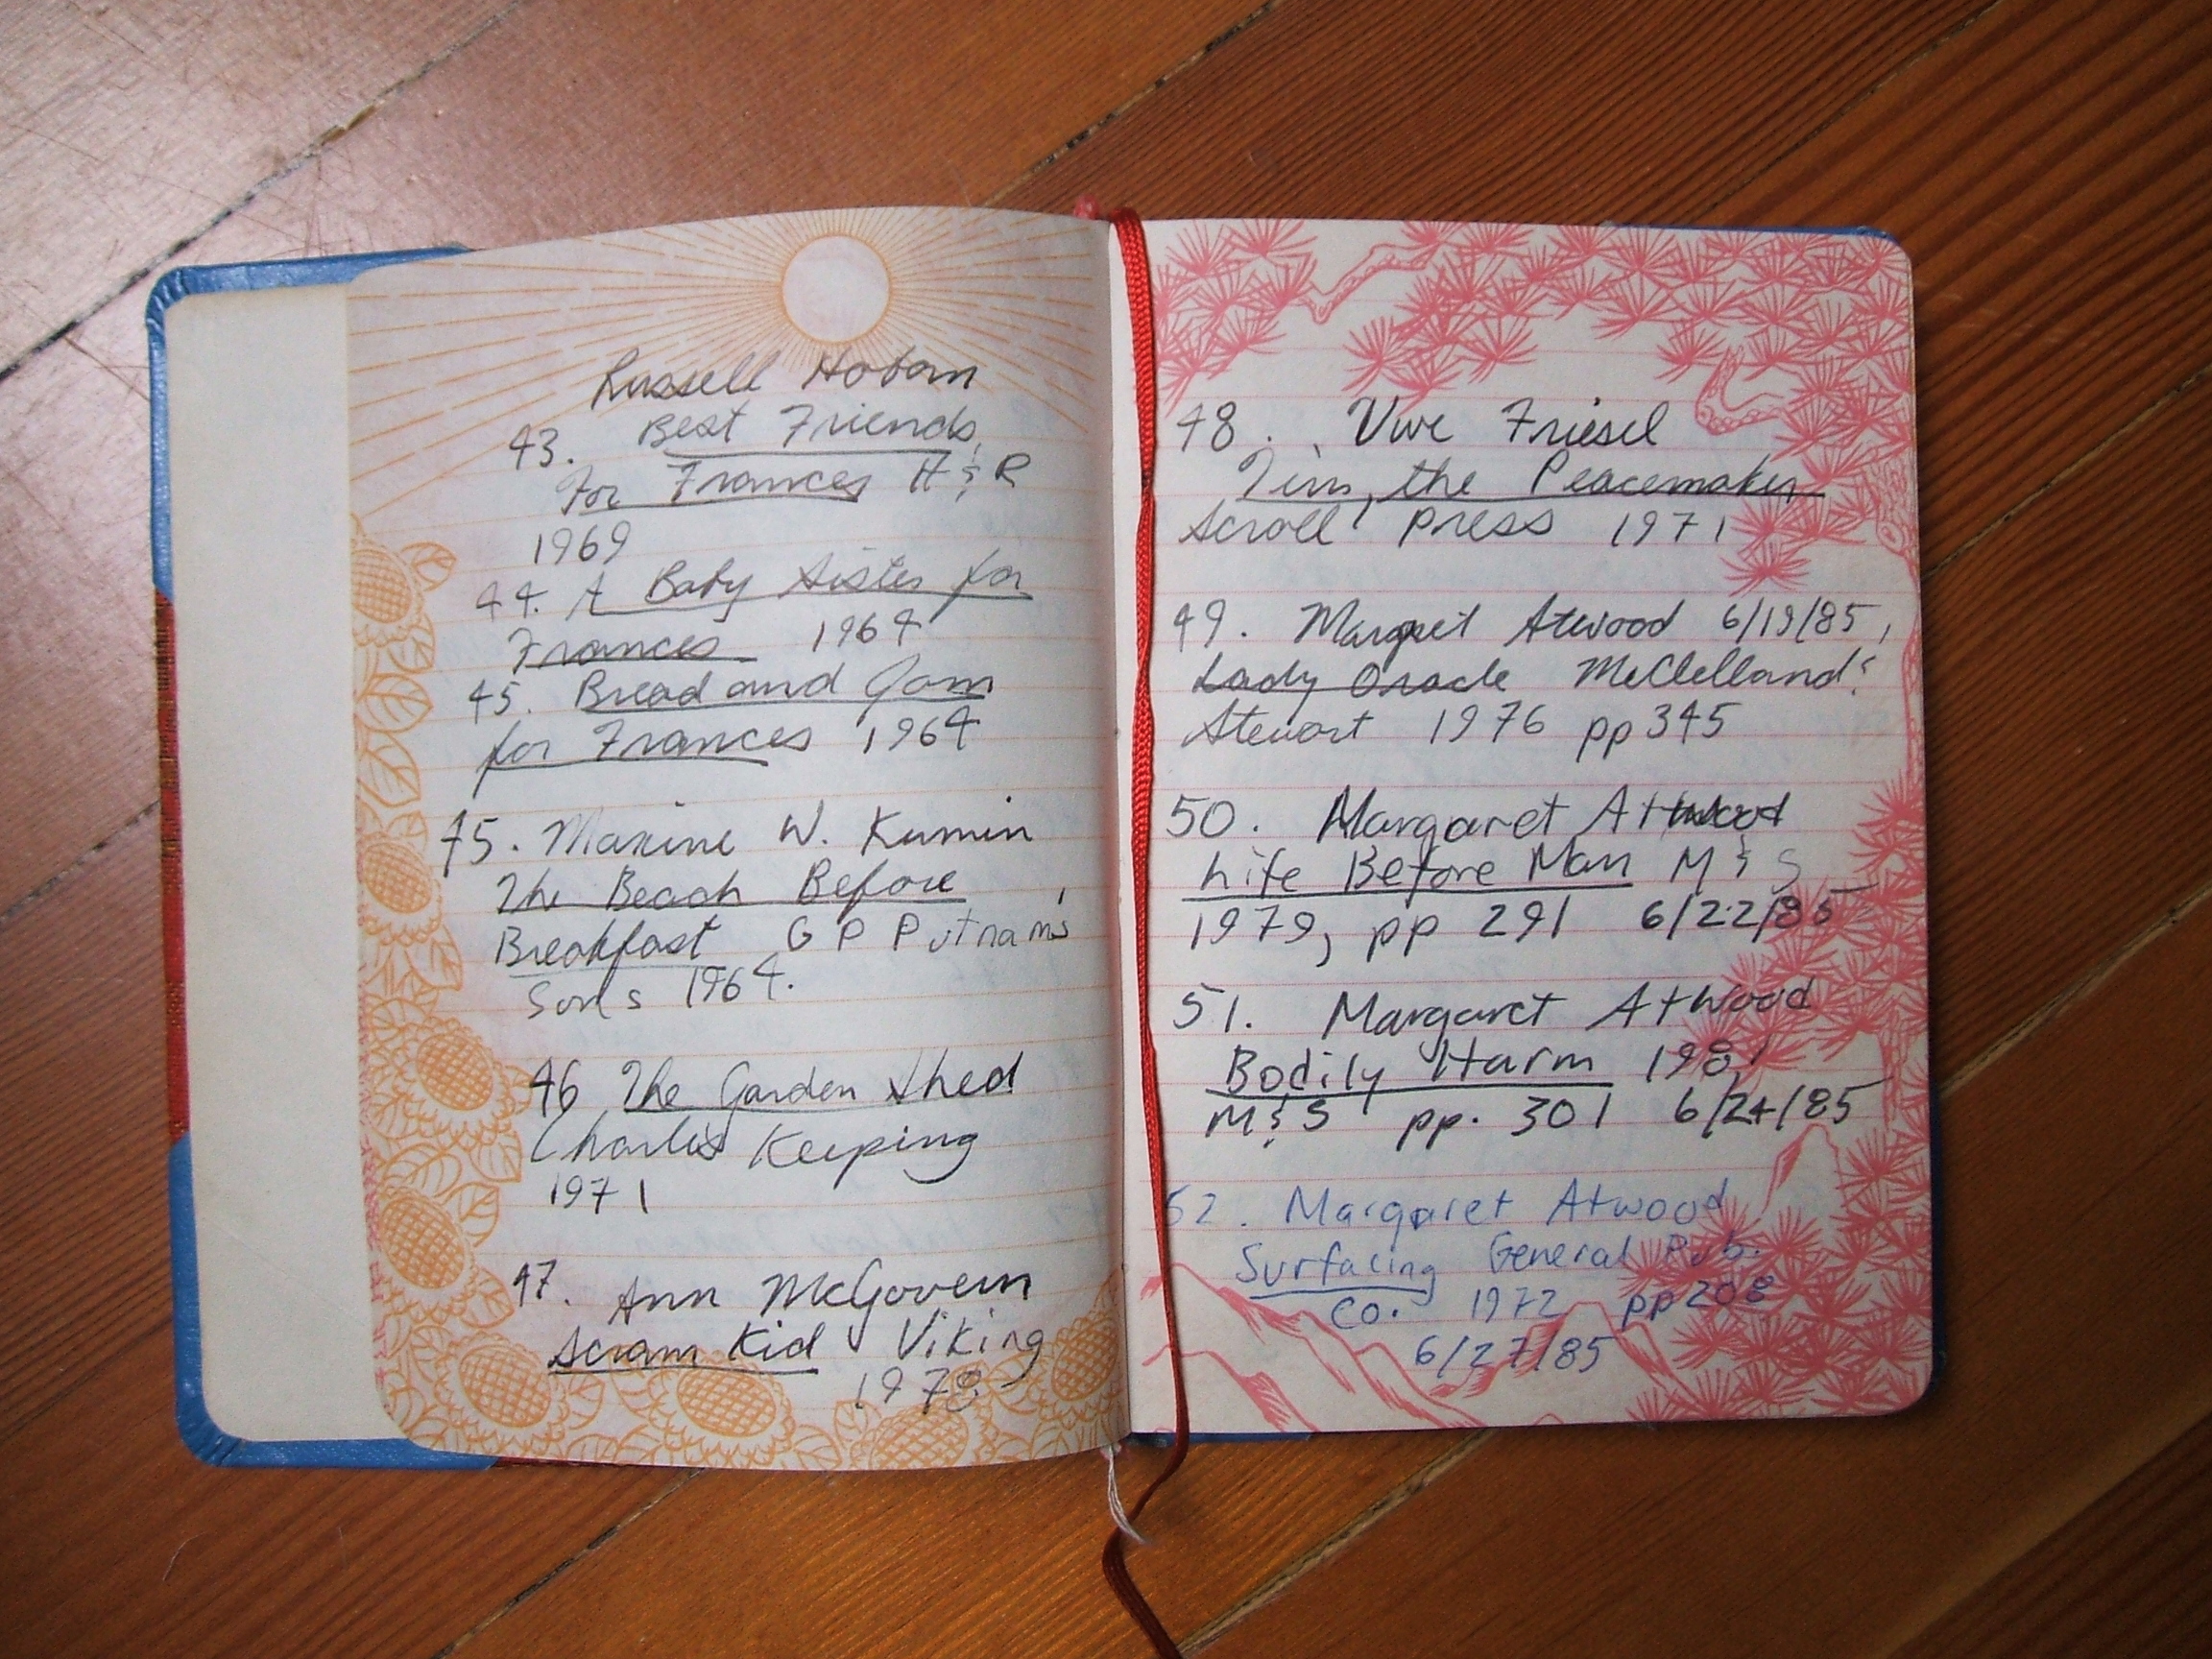 Russell Hoban
43. Best Friends
For Frances H & R
1969
44. A Baby Sister for
Frances 1964
45. Bread and Jam
for Frances 1964
45. Maxine W. Kumin
The Beach Before
Breakfast G P Putnam's
Sons 1964.
46 The Garden Shed
Charles Keeping
1971
47. Ann McGovern
Scram Kid Viking
1978
48. Uwe Friesel
Tim, the Peacemaker
Scroll Press 1971
49. Atwood 6/19/85,
Lady Oracle McClelland &
Stewart 1976 pp 345
50. Margaret Atwood
Life Before Man M & S
1979, pp 291 6/22/85
51. Margaret Atwood
Bodily Harm 1981
M & S pp. 301 6/24/85
52. Margaret Atwood
Surfacing General Pub.
Co. 1972 pp 208
6/27/85